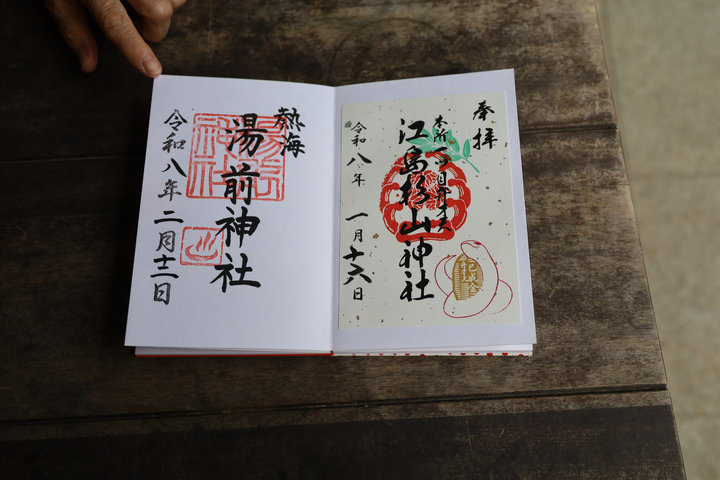 奉拝
本所一つ目弁天
江島杉山神社
令和八年 一月十六日
巳成金
熱海
湯前神社
令和八年二月十二日